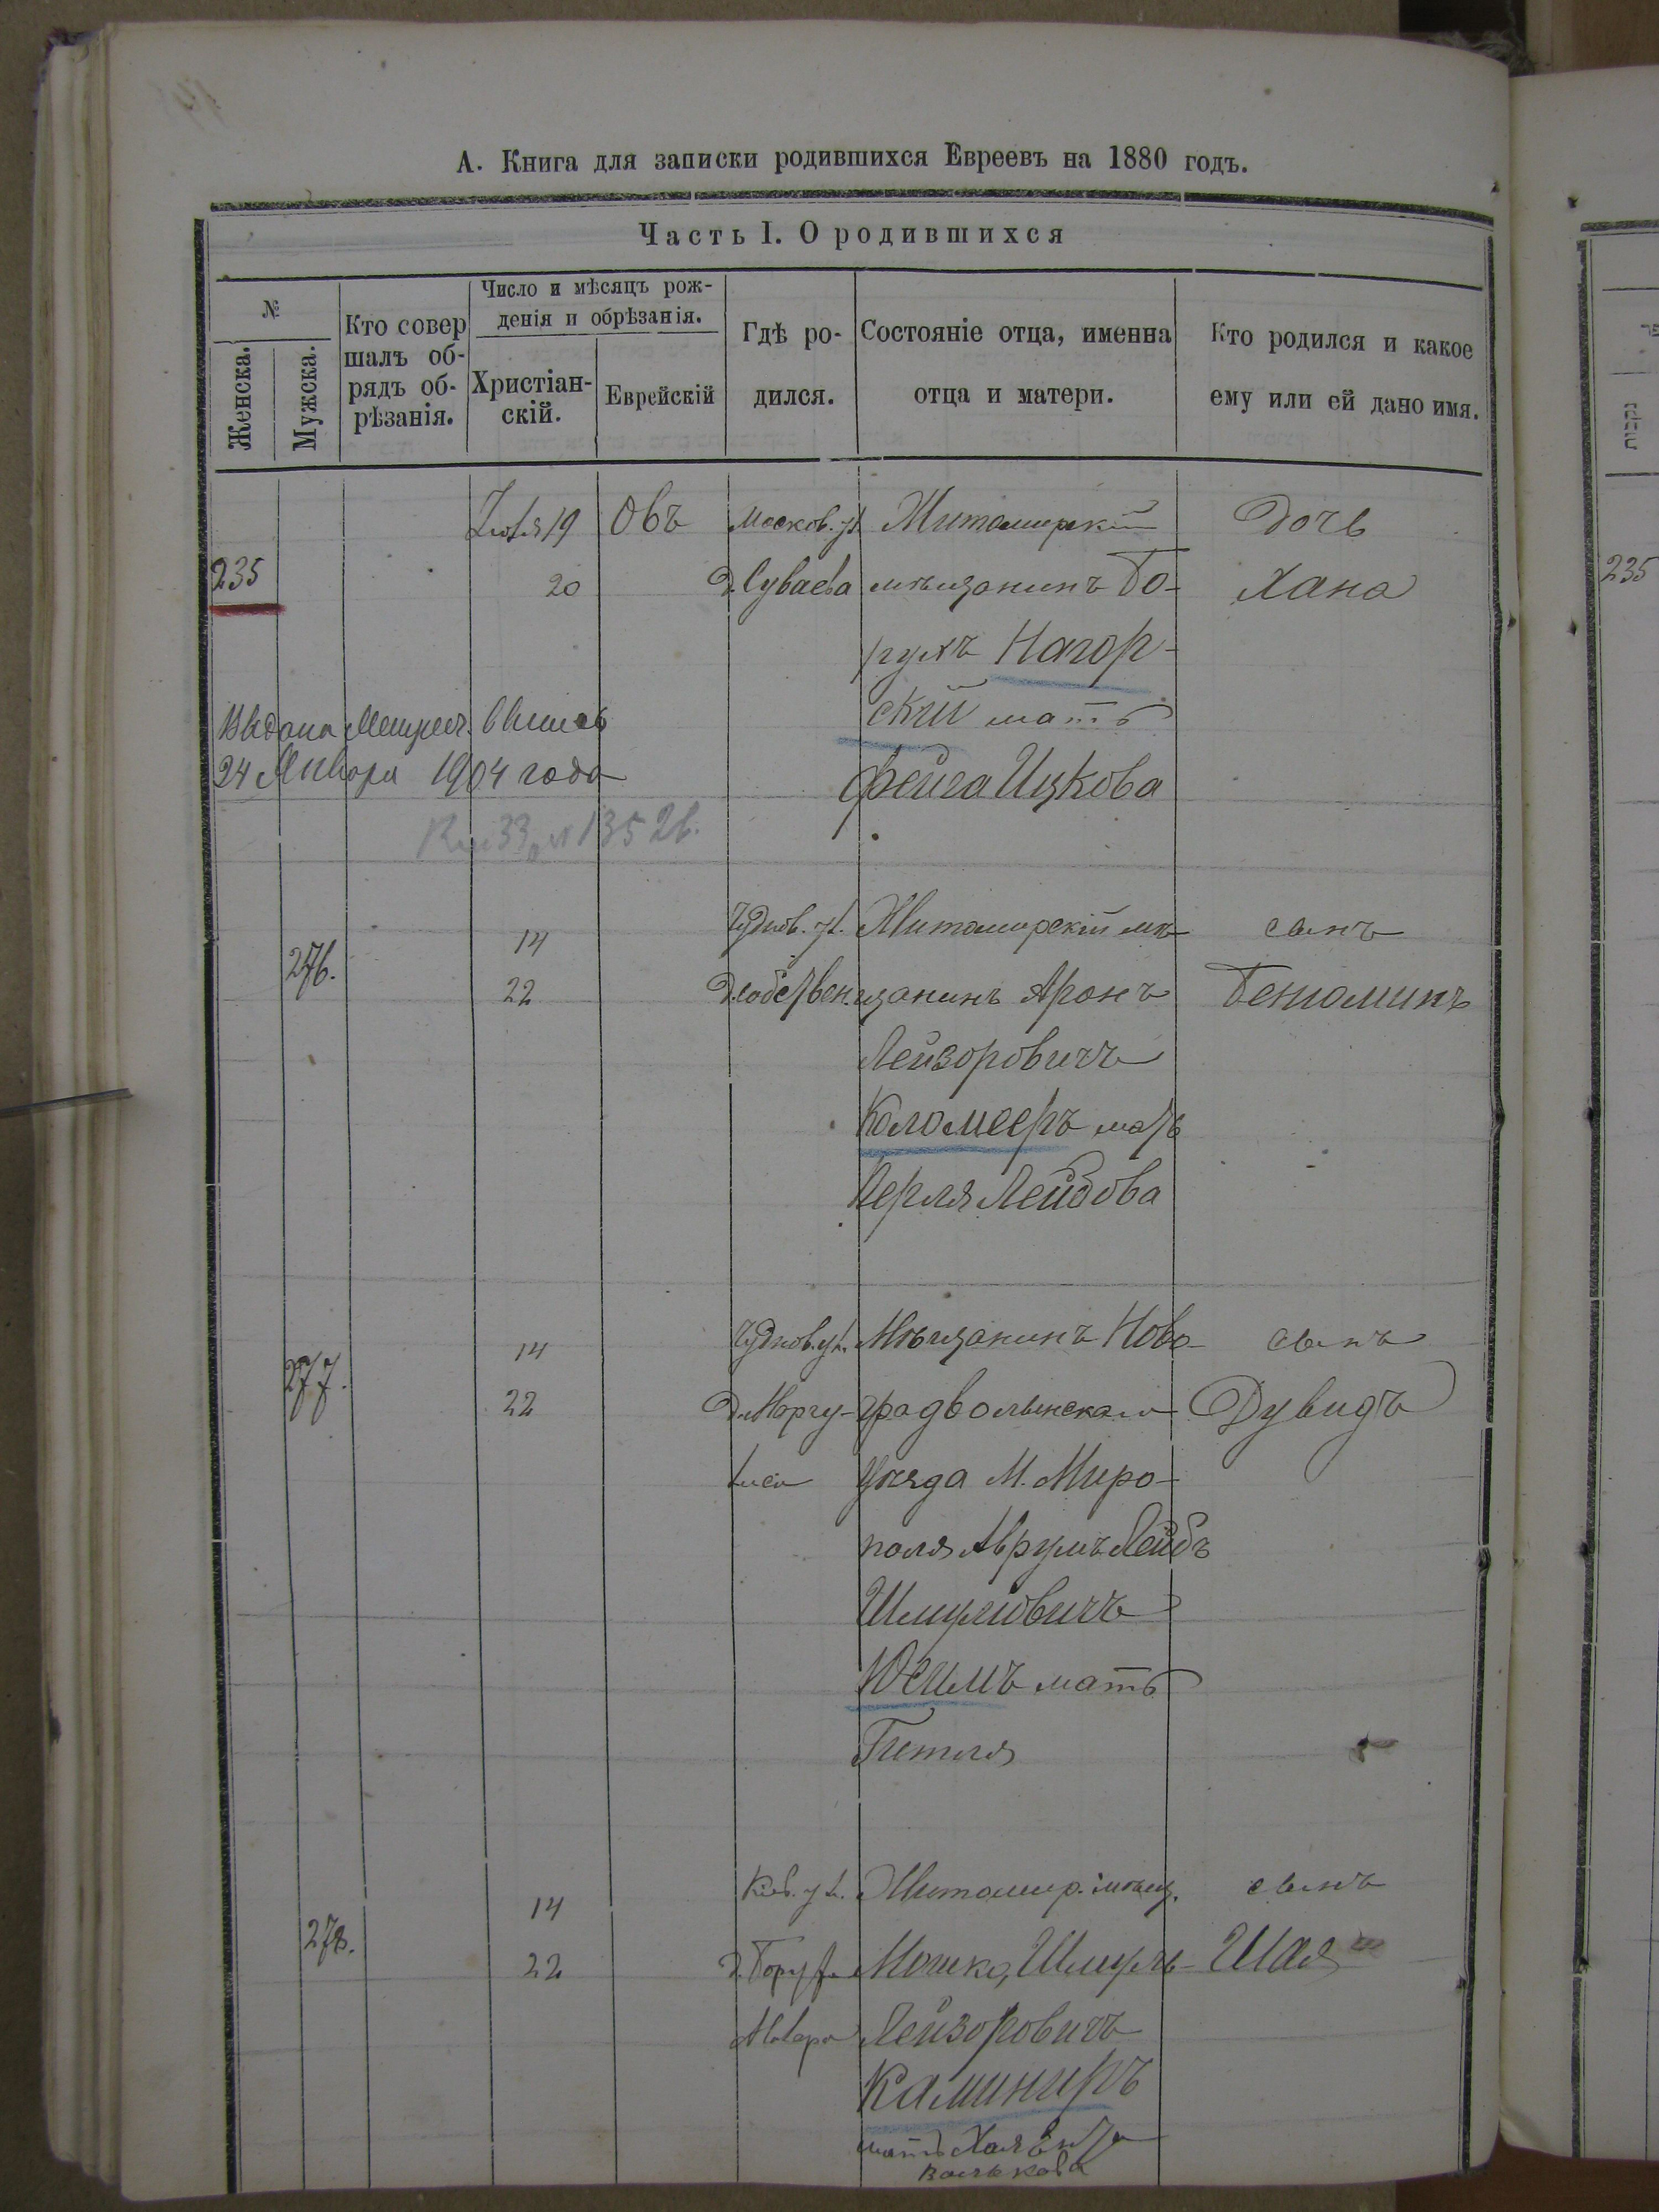 А. Книга для записки родившихся Евреевъ на 1880 годъ.
Часть I. О родившихся
№
Женска.
Мужска.
Кто совер
шалъ об-
рядъ об-
рѣзанія.
Число и мѣсяцъ рож-
денія и обрѣзанія.
Христіан-
скій.
Еврейскій
Гдѣ ро-
дился.
Состояніе отца, именна
отца и матери.
Кто родился и какое
ему или ей дано имя.
235
Іюля 19
20
Овъ
Москов. ул.
д. Суваева
Житомирскій
мѣщанинъ Бо-
рухъ Нагор-
скій мать
Фейга Ицкова
Дочь
Хана
Выдана Метрич. выпись
24 Января 1904 года
135
276.
14
22
Чуднов. ул.
д. собствен.
Житомирскій мѣ-
щанинъ Аронъ
Лейзоровичъ
Коломееръ мать
Перля Лейбова
сынъ
Бенюминъ
277.
14
22
Чуднов. ул.
д. Маргу-
лиса
Мѣщанинъ Ново-
градволынскаго
Уѣзда М. Миро-
поля Аврумъ Лейбъ
Шмулювичъ
Юсимъ мать
Гитля
сынъ
Дувидъ
278.
14
22
Кіев. ул.
Житомир. мѣщ.
Мошко, Шмуль-
Лейзоровичъ
Каминиръ
мать Хая
Волькова
сынъ
Шая
235